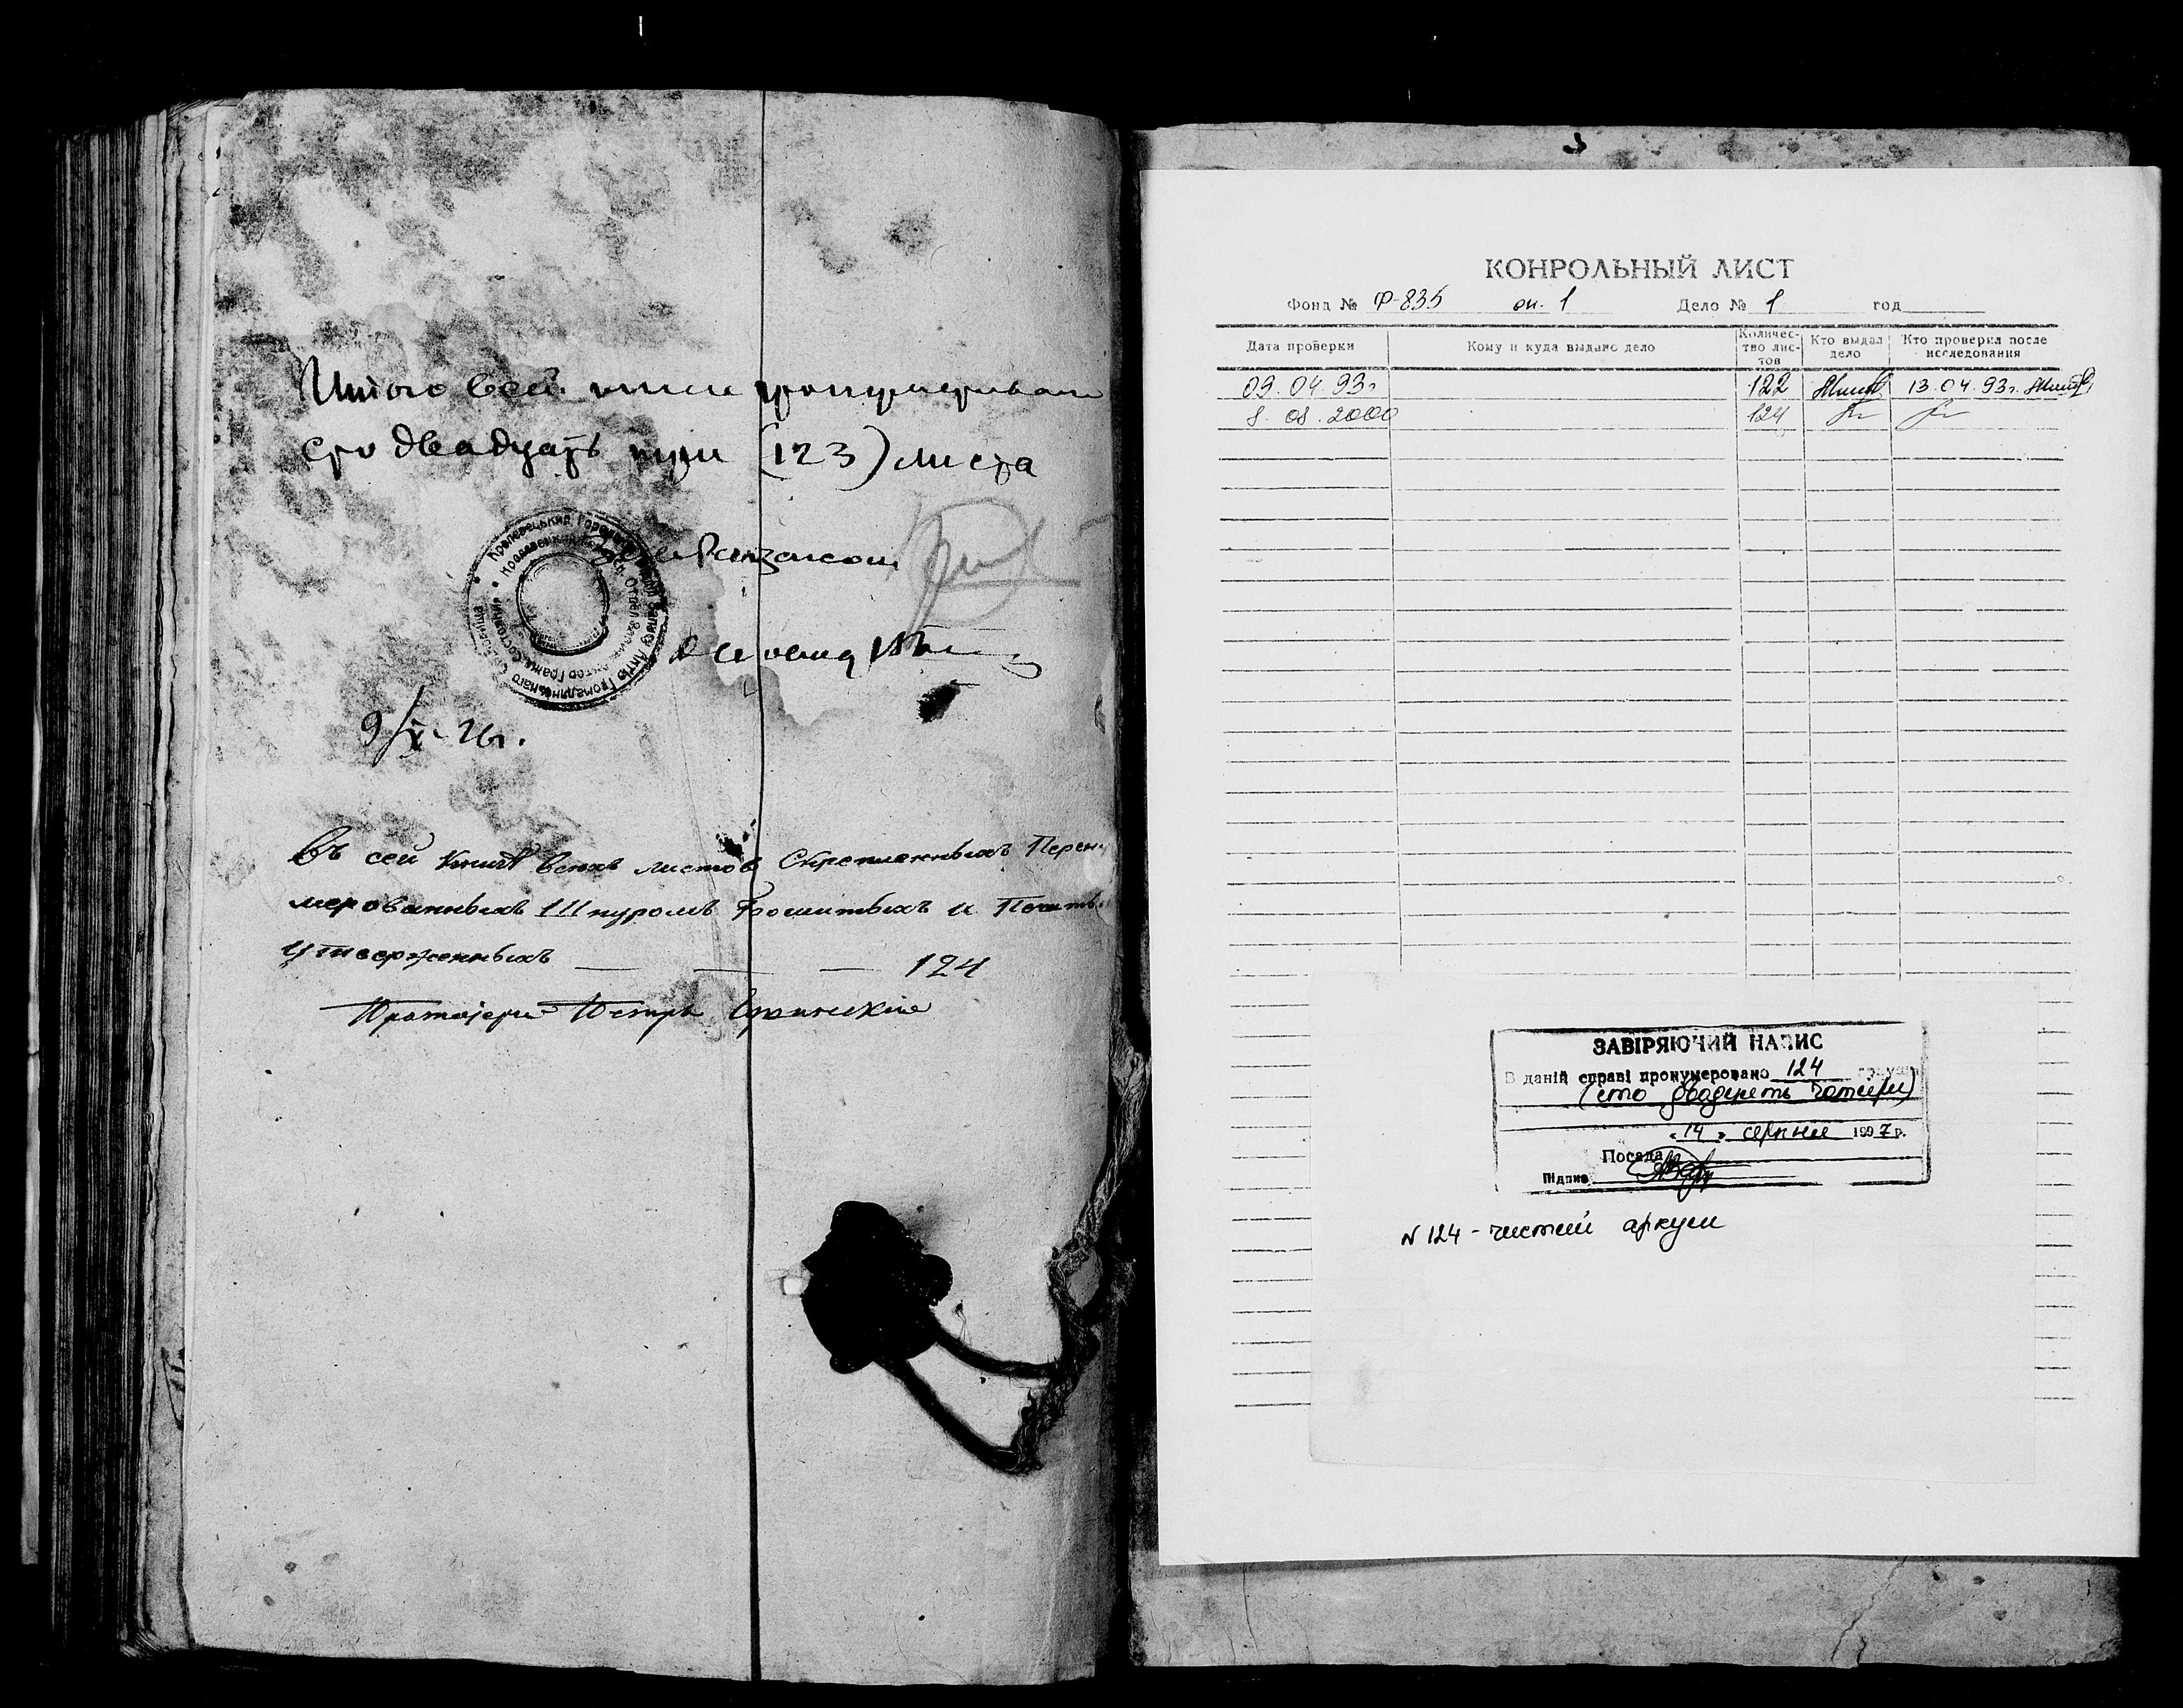 Итого в сей книге пронумеровано
сто двадцать три (123) листа
9/X-26г.
Въ сей Книгѣ всѣхъ листов Скрепленныхъ Перену
мерованныхъ Шнуромъ Прошитыхъ и Печатью
утверженныхъ — — — 124
Протоіерей Петръ
КОНРОЛЬНЫЙ ЛИСТ
Фонд № Ф-835 оп. 1 Дело № 1 год
Дата проверки Кому и куда выдано дело Количес-тво лис-тов Кто выдал дело Кто проверил после исследования
09.04.93г 122 13.04.93г.
8.08.2000 124
ЗАВІРЯЮЧИЙ НАПИС
В даній справі пронумеровано 124 аркуші
(сто двадцять чотири)
"14" серпня 1997 р.
Посада
Підпис
N 124 - чистий аркуш